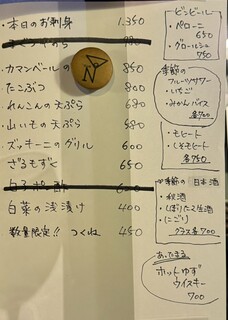 ・本日のお刺身 1.350
・カマンベールの 850
・たこぶつ 800
・れんこんの天ぷら 680
・山いもの天ぷら 680
・ズッキーニのグリル 600
・ざるもずく 650
・白子ポン酢 600
・白菜の浅漬け 400
数量限定!! つくね 450
ビンビール
・ペローニ
650
・グロールシュ
750
季節の
フルーツサワー
・いちご
・みかんバイス
各700
・モヒート
・しそモヒート
各750
季節の 日本酒
・秋酒
・しぼりたて生酒
(にごり)
グラス各700
あったまる
ホットゆず
ウイスキー
700